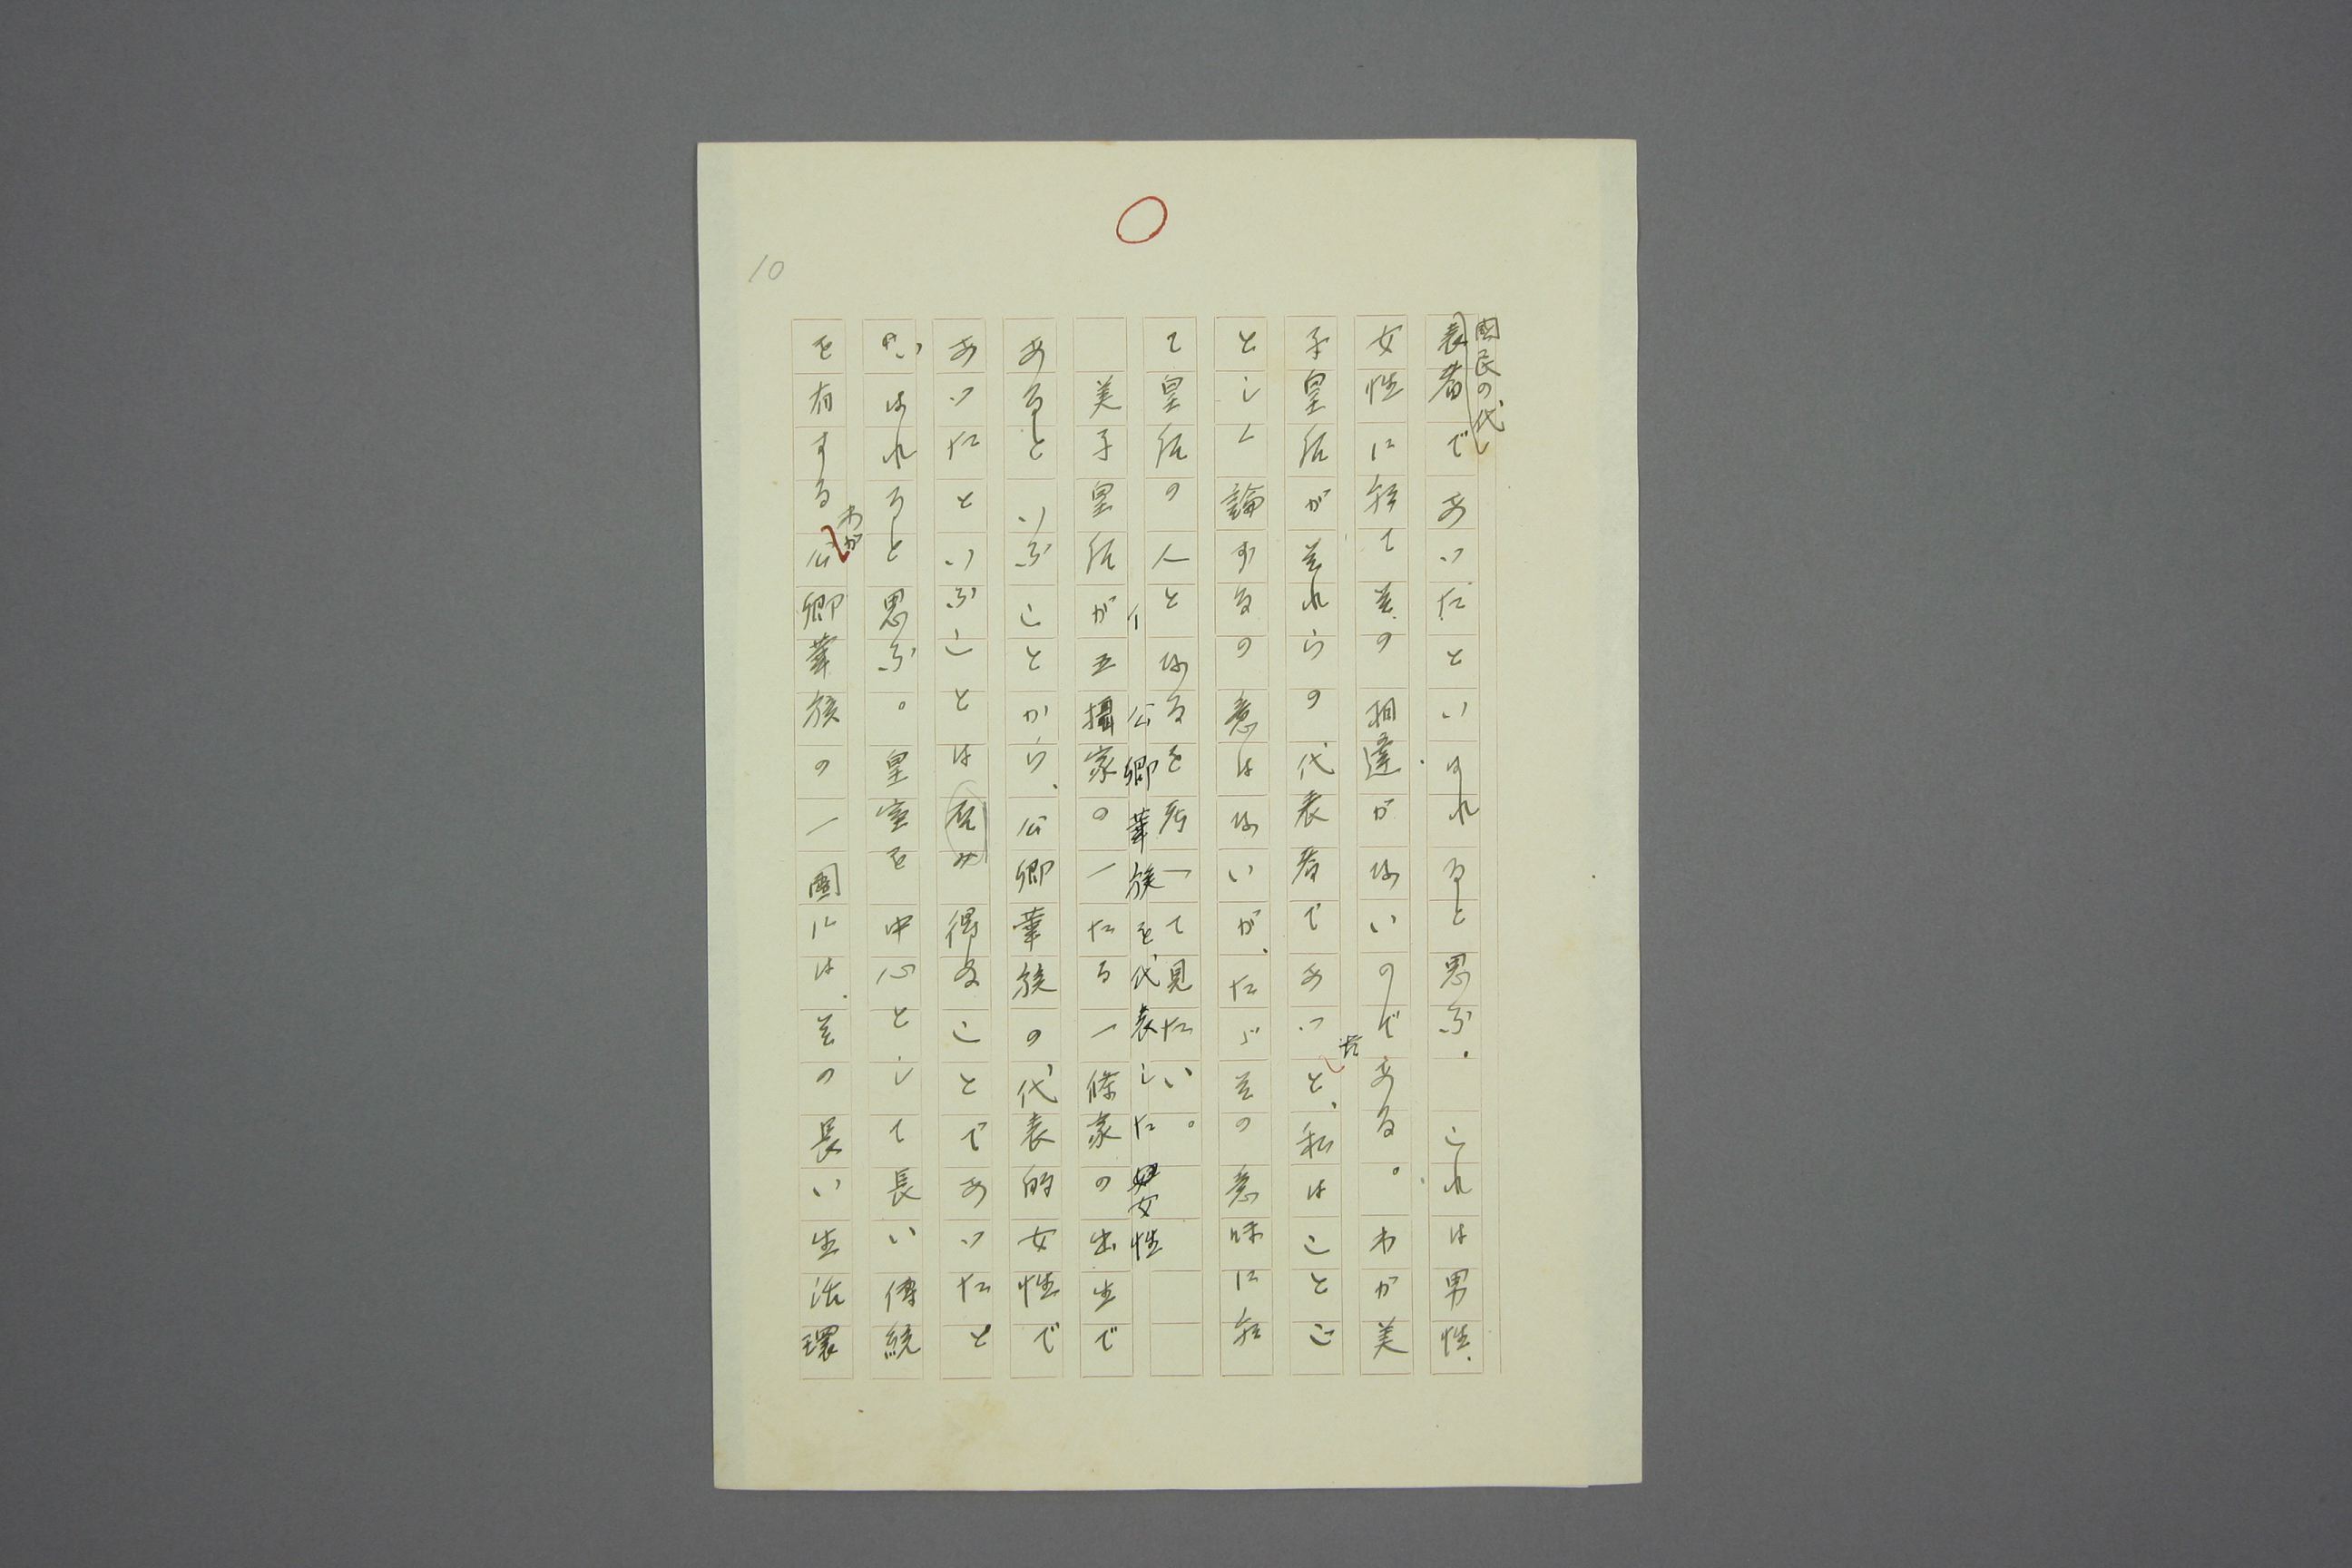 10
國民の代
表者であつたといはれると思ふ。これは男性、
女性に於て差の相違がないのである。わが美
子皇后がそれらの代表者であつた
と、私はことご
としく論ずるの意はないが、たゞその意味に於
て皇后の人となるを考へて見たい。
イ 公卿華族を代表した女性
美子皇后が五攝家の一たる一條家の出生で
あるといふことから、公卿華族の代表的女性で
あつたといふことは
み得ることであつたと
いはれると思ふ。皇室を中心として長い傳統
を有する
わが
公卿華族の一團には、その長い生活環